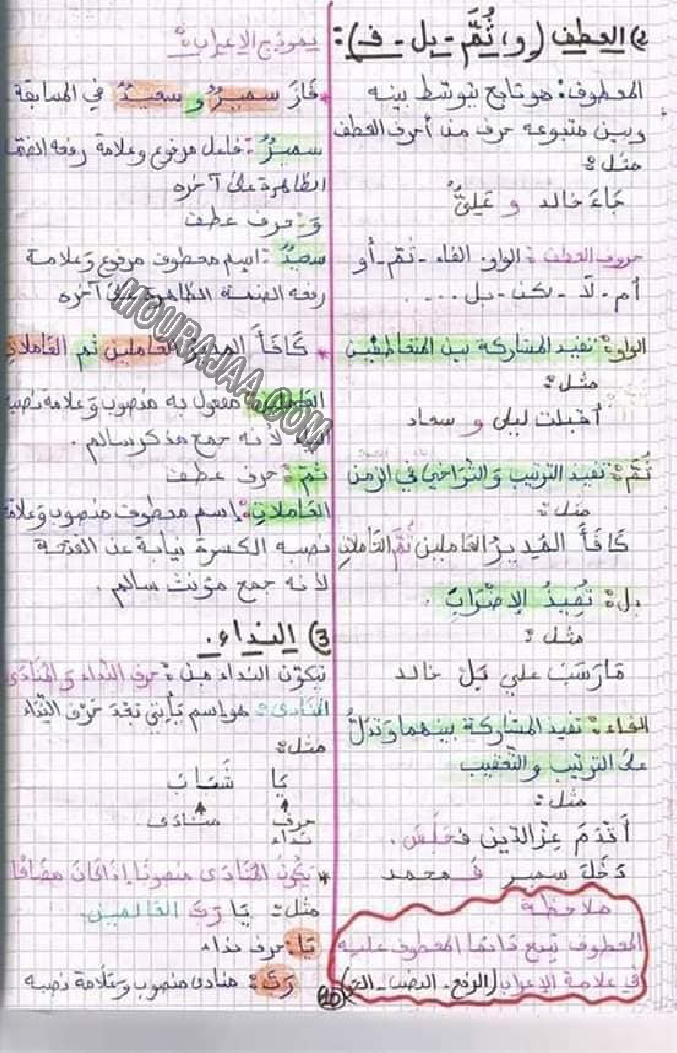 2) العطف (و، ثُمَّ - بل - ف):
المعطوف: هو تابع يتوسط بينه
وبين متبوعه حرف من أحرف العطف
مثل:
جَاءَ خالد و عَلِيٌّ
حروف العطف: الواو، الفاء - ثم - أو
أم - لا - لكن - بل ....
الواو: تفيد المشاركة بين المتعاطفين
مثل:
أقبلت ليلى و سعاد
ثُمَّ: تفيد الترتيب وَالتَّرَاخي في الزمن
مثل:
كَافَأَ المُدِيرُ العاملين ثُمَّ العَاملات
بل: تُفِيدُ الإِضْرَابَ.
مثل:
مَا رَسَبَ علي بَلْ خالد
الفاء: تفيد المشاركة بينهما وَتَدُلُّ
على الترتيب و التَّعْقيب
مثل:
أَقْدَمَ عِزّ الدّين فَجَلَسَ.
دَخَلَ سمير فَـ محمد
ملاحظة
المعطوف يتبع دَائمًا المعطوف عليه
في علامة الإعراب (الرفع - النصب - الجر)
10
نموذج الإعراب:
* فَازَ سميرٌ و سعيدٌ في المسابقة
سميرٌ: فاعل مرفوع وعلامة رفعه الضمة
الظاهرة على آخره
وَ: حرف عطف
سعيدٌ: اسم معطوف مرفوع وَعلامة
رفعه الضمة الظاهرة على آخره
* كَافَأَ المدير العاملين ثم العَاملات
العاملين: مفعول به منصوب وَعلامة نصبه
الياء لأنه جمع مذكر سالم.
ثمّ: حرف عطف
العَاملاتِ: إسم معطوف منصوب وَعلامة
نصبه الكسرة نيابة عن الفتحة
لأنه جمع مؤنث سالم.
3) النداء.
يتكوّن النداء من: حرف النّداء وَ المنَادَى
المنَادى: هو اسم يَأْتِي بَعْدَ حَرْفِ النِّدَاء
مثل:
يَا شَبَابُ
حرف منادى
نداء
* يَكُونُ المُنَادَى منصوبًا إذا كَانَ مضَافًا
مثل: يَا رَبَّ العَالَمينَ.
يَا: حرف نداء
رَبَّ: منادى منصوب وعَلَامة نصبه
MOURAJAA.COM